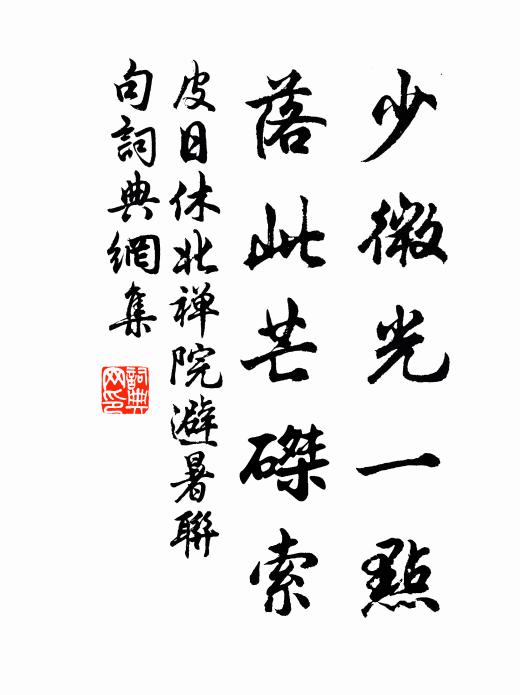 少微光一點
落此芒磔索
皮日休北禅院避暑聯
句詞典網集
詞典
网印